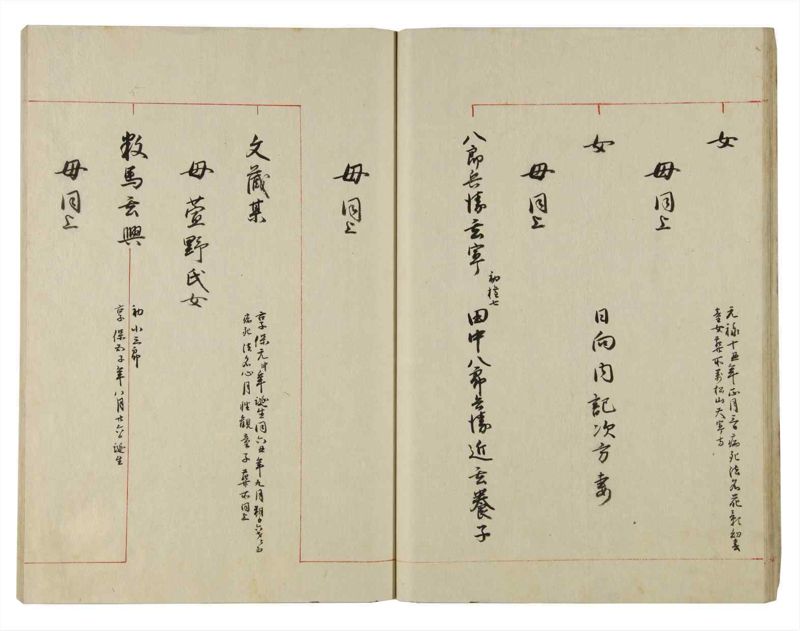 女
元禄十五年正月三日病死法名花影幻春
童女葬所万松山天寧寺
母同上
女
日向内記次方妻
母同上
八郎兵衛玄寧
田中八郎兵衛近玄養子
母同上
文蔵某
享保元申年誕生同六丑年九月朔日六才ニ而
病死法名心月性観童子葬所同上
母 萱野氏女
数馬玄興
初小三郎
享保五子年八月廿六日誕生
母同上